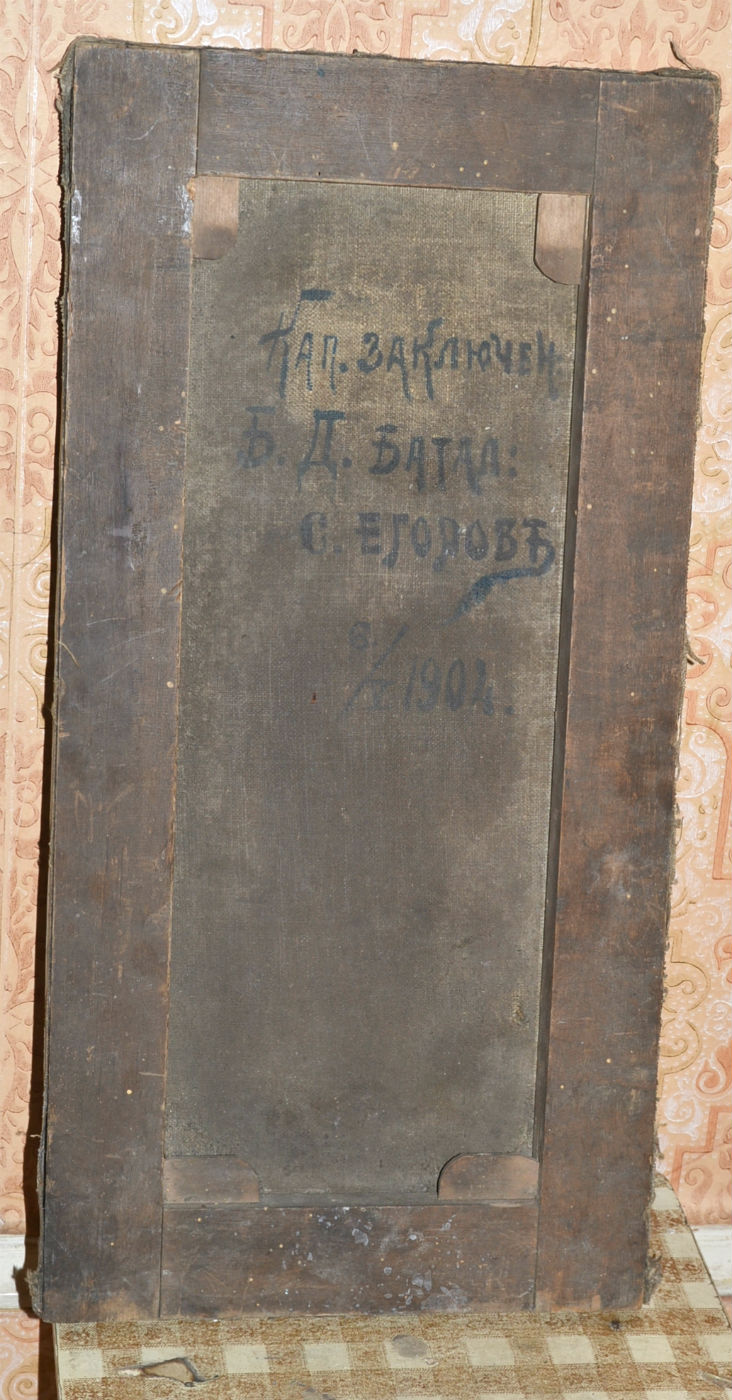 КАП. ЗАКЛЮЧЕН.
Б. Д. БАТАЛ:
С. ЕГОРОВЪ
6/IV 1904.